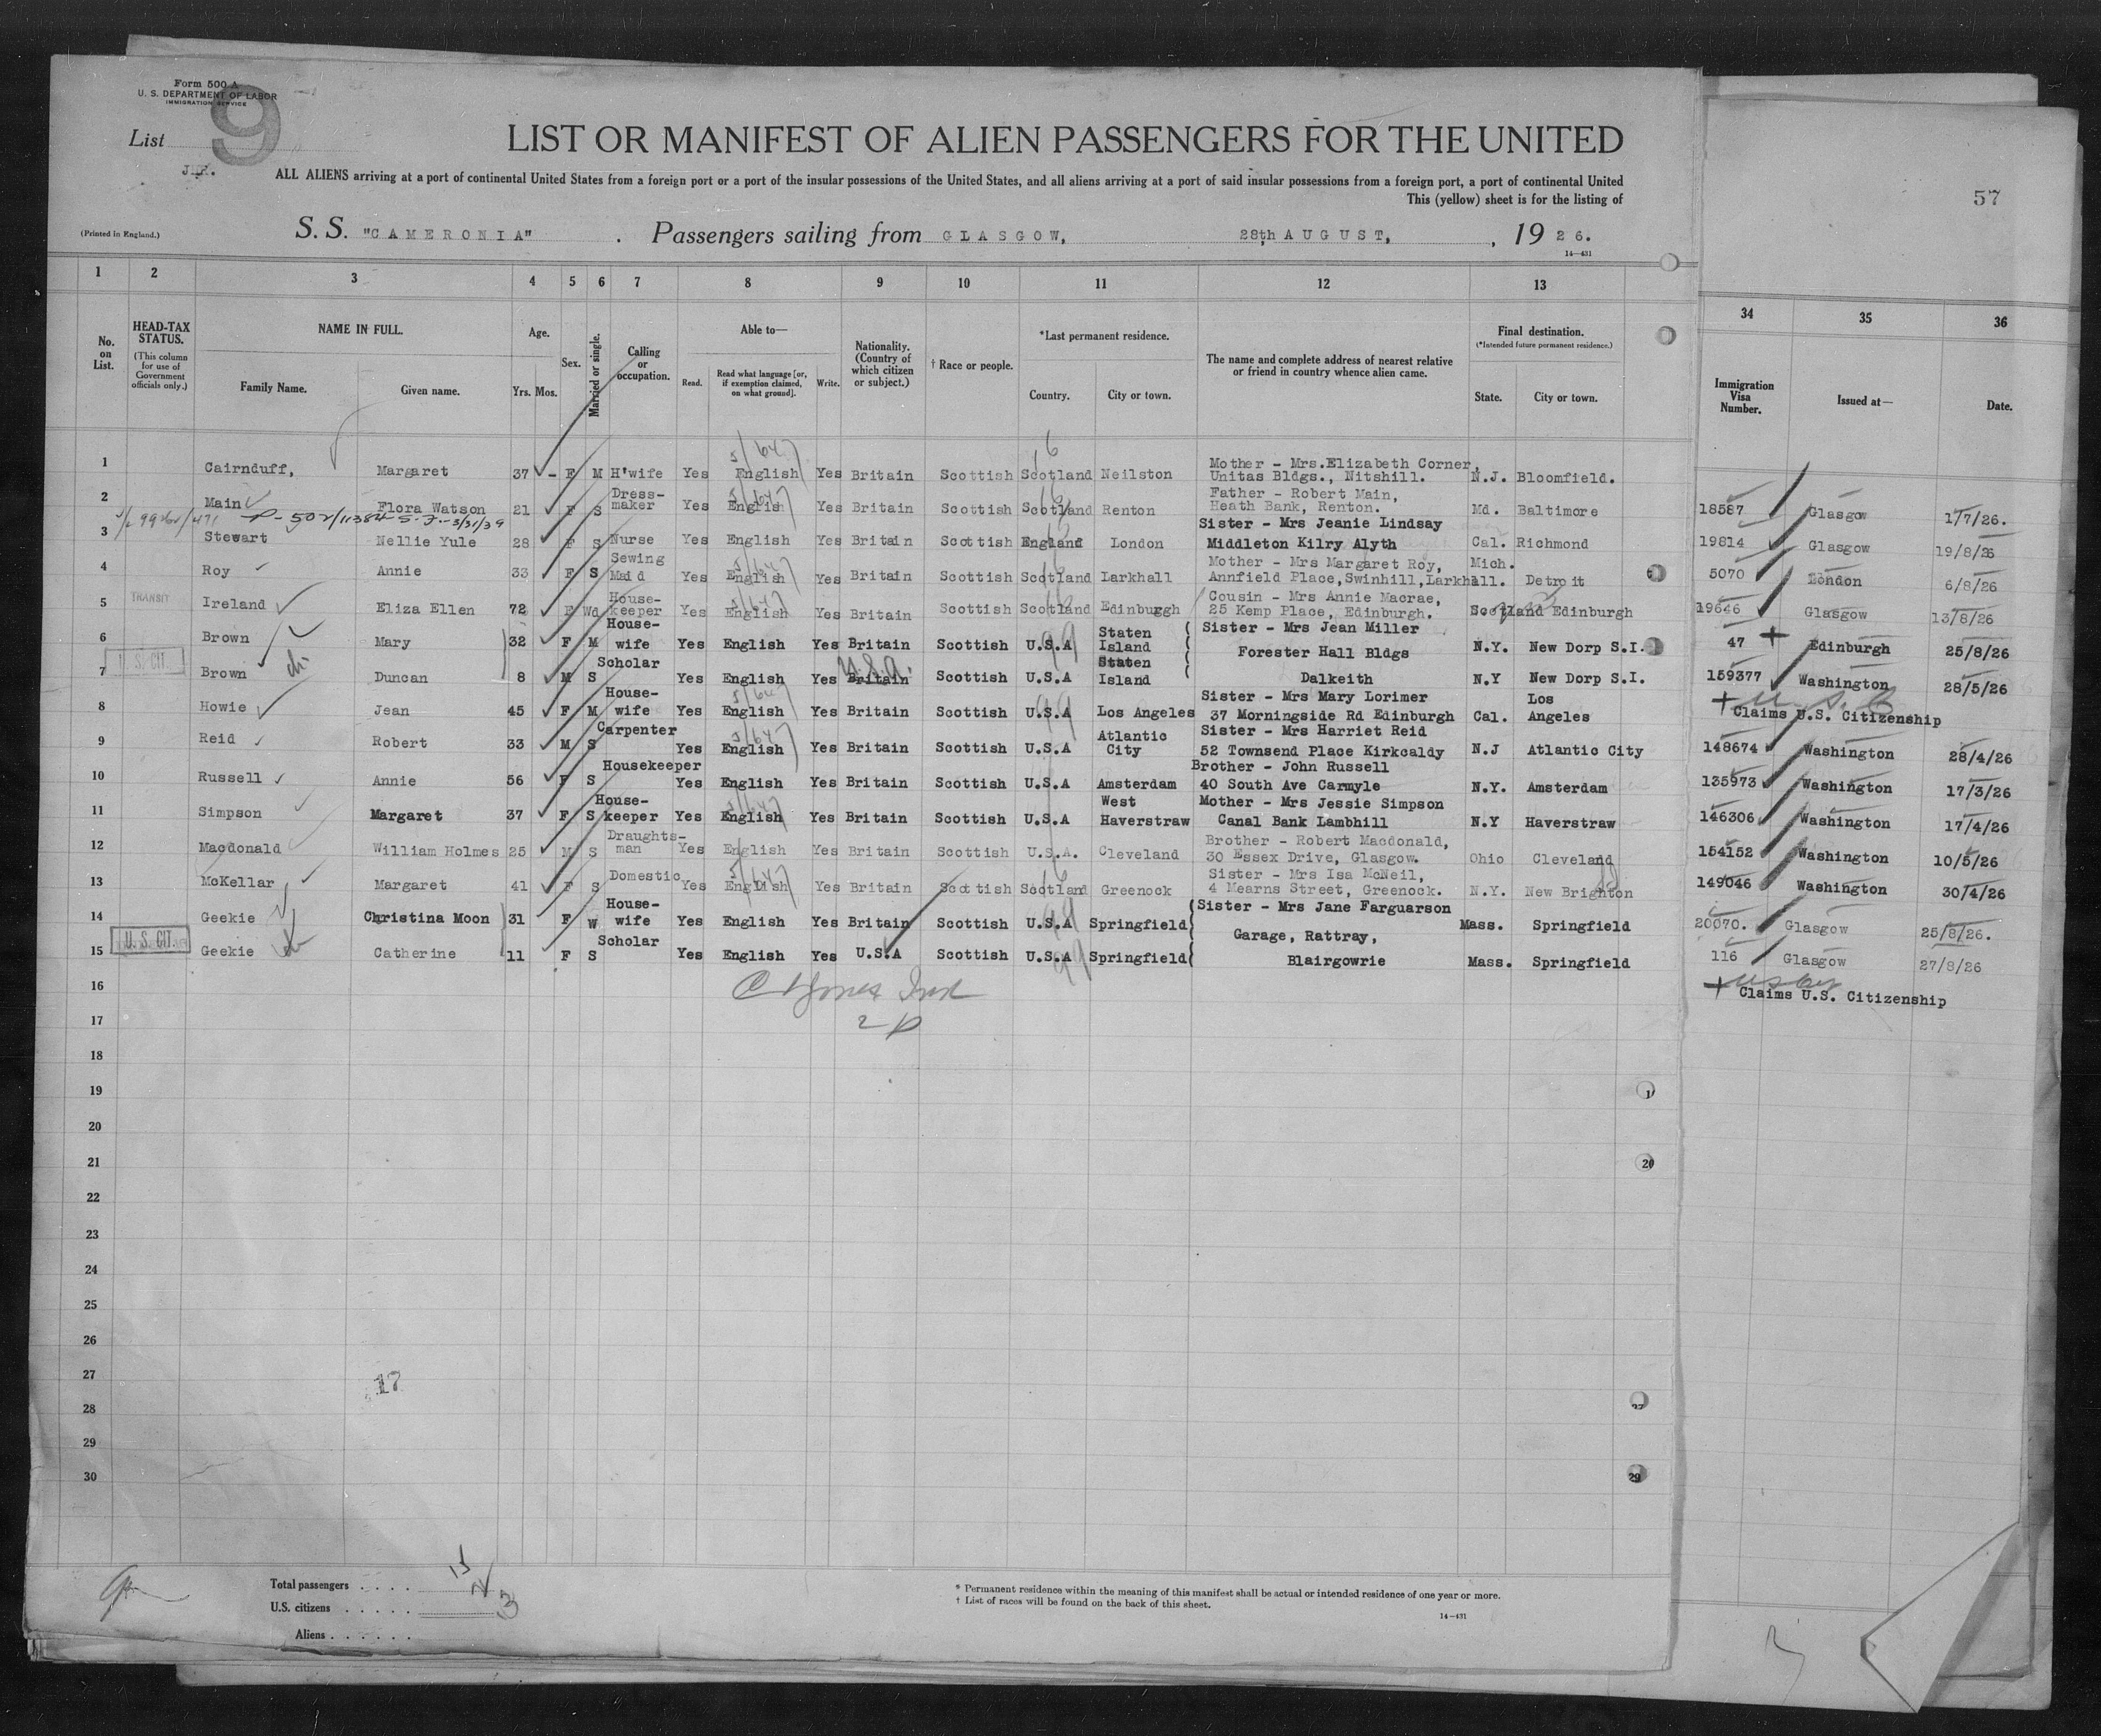 Form 500 A
U. S. DEPARTMENT OF LABOR
IMMIGRATION SERVICE
List 9
LIST OR MANIFEST OF ALIEN PASSENGERS FOR THE UNITED
ALL ALIENS arriving at a port of continental United States from a foreign port or a port of the insular possessions of the United States, and all aliens arriving at a port of said insular possessions from a foreign port, a port of continental United
This (yellow) sheet is for the listing of
57
(Printed in England.)
S. S. "CAMERONIA" . Passengers sailing from GLASGOW, 28th AUGUST, , 19 26.
14—431
1 2 3 4 5 6 7 8 9 10 11 12 13 34 35 36
No. on List.
HEAD-TAX STATUS.
(This column for use of Government officials only.)
NAME IN FULL.
Family Name. Given name.
Age.
Yrs. Mos.
Sex.
Married or single.
Calling or occupation.
Able to—
Read. Read what language [or, if exemption claimed, on what ground]. Write.
Nationality. (Country of which citizen or subject.)
† Race or people.
*Last permanent residence.
Country. City or town.
The name and complete address of nearest relative or friend in country whence alien came.
Final destination.
(*Intended future permanent residence.)
State. City or town.
Immigration Visa Number.
Issued at—
Date.
1 Cairnduff, Margaret 37 - F M H'wife Yes English Yes Britain Scottish Scotland Neilston Mother - Mrs.Elizabeth Corner, Unitas Bldgs., Nitshill. N.J. Bloomfield.
2 Main Flora Watson 21 F S Dress-maker Yes English Yes Britain Scottish Scotland Renton Father - Robert Main, Heath Bank, Renton. Md. Baltimore
18587 Glasgow 1/7/26.
3 Stewart Nellie Yule 28 F S Nurse Yes English Yes Britain Scottish England London Sister - Mrs Jeanie Lindsay Middleton Kilry Alyth Cal. Richmond
19814 Glasgow 19/8/26
4 Roy Annie 33 F S Sewing Maid Yes English Yes Britain Scottish Scotland Larkhall Mother - Mrs Margaret Roy, Annfield Place,Swinhill,Larkhall. Mich. Detroit
5070 London 6/8/26
5 TRANSIT Ireland Eliza Ellen 72 F Wd House-keeper Yes English Yes Britain Scottish Scotland Edinburgh Cousin - Mrs Annie Macrae, 25 Kemp Place, Edinburgh. Scotland Edinburgh
19646 Glasgow 13/8/26
6 Brown Mary 32 F M House-wife Yes English Yes Britain Scottish U.S.A Staten Island Sister - Mrs Jean Miller Forester Hall Bldgs N.Y. New Dorp S.I.
47 Edinburgh 25/8/26
7 U. S. CIT. Brown Duncan 8 M S Scholar Yes English Yes Britain U.S.A. Scottish U.S.A Staten Island Dalkeith N.Y New Dorp S.I.
159377 Washington 28/5/26
8 Howie Jean 45 F M House-wife Yes English Yes Britain Scottish U.S.A Los Angeles Sister - Mrs Mary Lorimer 37 Morningside Rd Edinburgh Cal. Los Angeles
Claims U.S. Citizenship
9 Reid Robert 33 M S Carpenter Yes English Yes Britain Scottish U.S.A Atlantic City Sister - Mrs Harriet Reid 52 Townsend Place Kirkcaldy N.J Atlantic City
148674 Washington 28/4/26
10 Russell Annie 56 F S Housekeeper Yes English Yes Britain Scottish U.S.A Amsterdam Brother - John Russell 40 South Ave Carmyle N.Y. Amsterdam
135973 Washington 17/3/26
11 Simpson Margaret 37 F S House-keeper Yes English Yes Britain Scottish U.S.A West Haverstraw Mother - Mrs Jessie Simpson Canal Bank Lambhill N.Y Haverstraw
146306 Washington 17/4/26
12 Macdonald William Holmes 25 M S Draughts-man Yes English Yes Britain Scottish U.S.A. Cleveland Brother - Robert Macdonald, 30 Essex Drive, Glasgow. Ohio Cleveland
154152 Washington 10/5/26
13 McKellar Margaret 41 F S Domestic Yes English Yes Britain Scottish Scotland Greenock Sister - Mrs Isa McNeil, 4 Mearns Street, Greenock. N.Y. New Brighton
149046 Washington 30/4/26
14 Geekie Christina Moon 31 F W House-wife Yes English Yes Britain Scottish U.S.A Springfield Sister - Mrs Jane Farguarson Garage, Rattray, Mass. Springfield
20070. Glasgow 25/8/26.
15 U. S. CIT. Geekie Catherine 11 F S Scholar Yes English Yes U.S.A Scottish U.S.A Springfield Blairgowrie Mass. Springfield
116 Glasgow 27/8/26
16
Claims U.S. Citizenship
17
18
19
20
21
22
23
24
25
26
27
17
28
29
30
Total passengers . . . .
U.S. citizens . . . . .
Aliens . . . . . .
* Permanent residence within the meaning of this manifest shall be actual or intended residence of one year or more.
† List of races will be found on the back of this sheet.
14—431